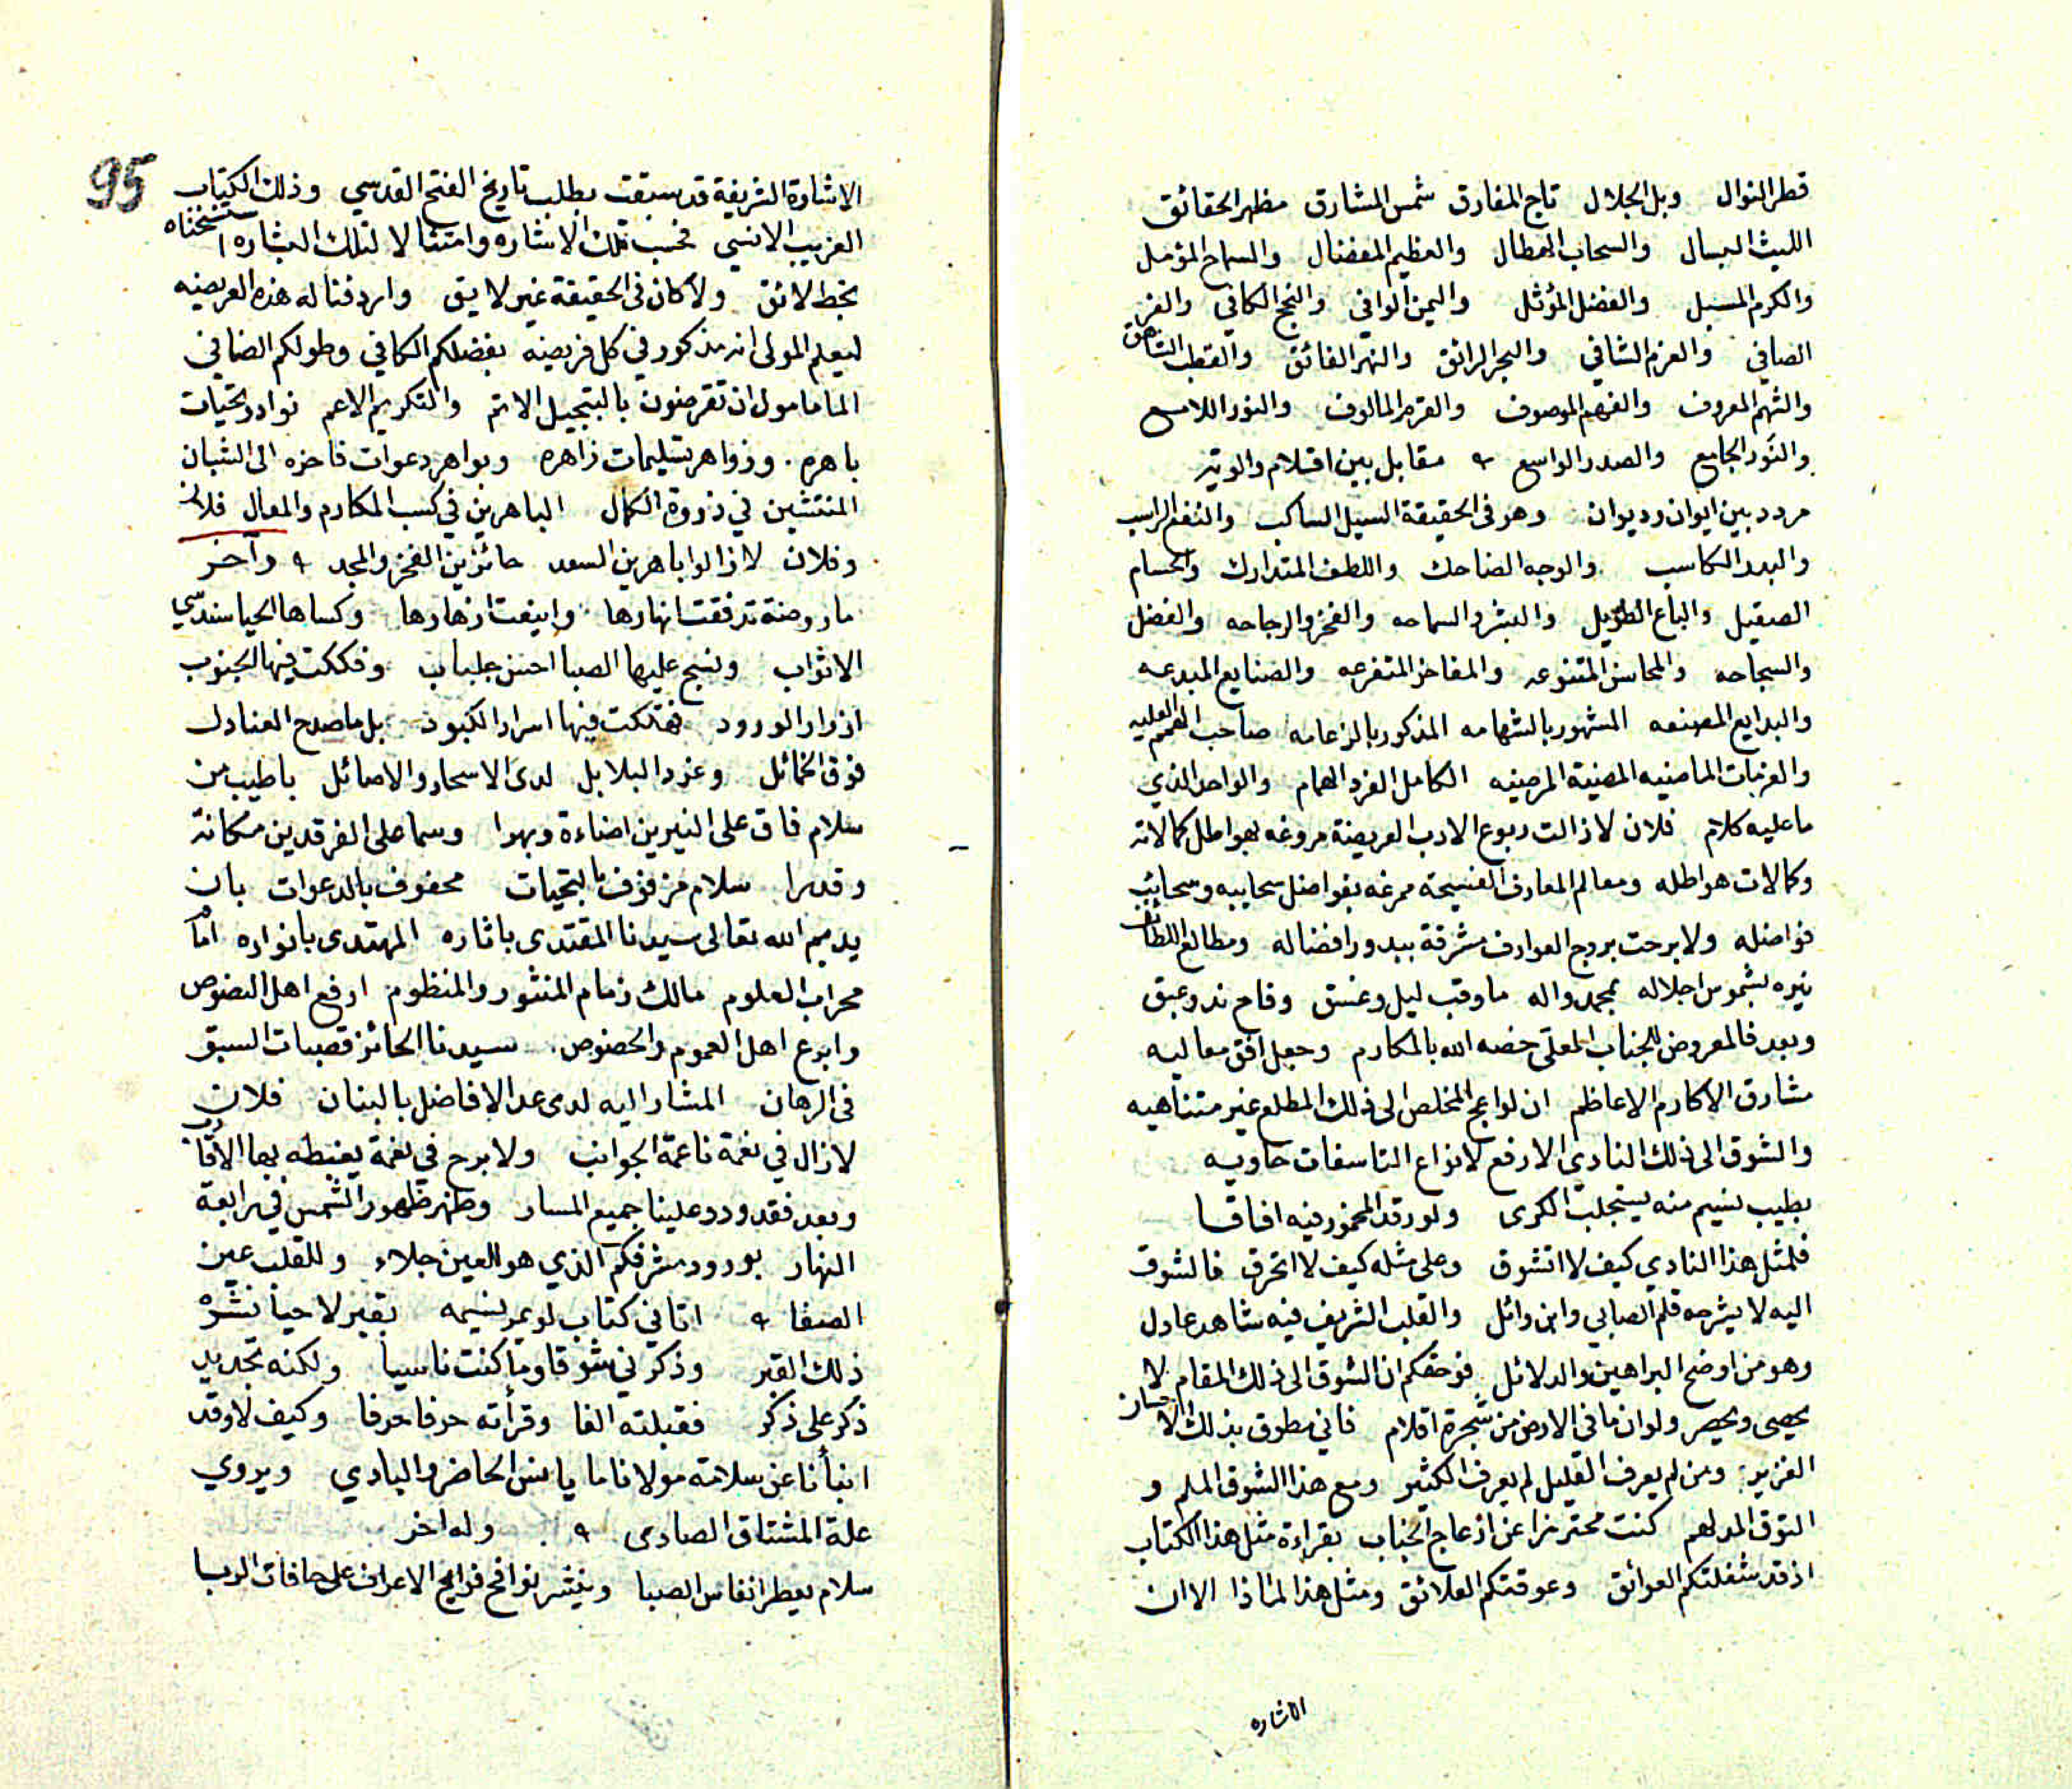 قطر النوال وبل الجلال تاج المفارق شمس المشارق مظهر الحقائق
الليث البسال والسحاب الهطال والعظيم المفضال والسماح المؤمل
والكرم المسبل والفضل المؤثل واليمن الوافي والنجح الكافي والفز
الصافي والعزم الشافي والبحر الرائق والنهر الفائق والقطب الشاهق
والشهم المعروف والفهم الموصوف والقرم المالوف والنور اللامع
والنَور الجامع والصدر الواسع مقابل بين اقلام والوية
مردد بين ايوان وديوان وهو في الحقيقة السيل الساكب والنفع الراسب
والبدر الكاسب والوجه الضاحك واللطف المتدارك والحسام
الصقيل والباع الطويل والبشر والسماحه والفخر والرجاحه والفضل
والسجاحه والمحاسن المتنوعه والمفاخر المتفرعه والصنايع المبدعه
والبدايع المصنعه المشهور بالشهامه المذكور بالزعامه صاحب الهمم العليه
والعزمات الماضيه المضية المرضيه الكامل الفرد الهمام والواحد الذي
ما عليه كلام فلان لا زالت ربوع الادب العريضة مروغه بهواطل كمالاته
وكمالات هواطله ومعالم المعارف الفسيحة ممرغه بفواضل سحايبه وسحائب
فواضله ولا برحت بروج العوارف مشرقة ببدور افضاله ومطالع اللطائف
نيره بشموس اجلاله بمحمد واله ما وقب ليل وغسق وفاح ند وعبق
وبعد فالمعروض للجناب المعلى خصه الله بالمكارم وجعل افق معاليه
مشارق الاكارم الاعاظم ان لواعج المخلص الى ذلك المطلع غير متناهيه
والشوق الى ذلك النادي الارفع لانواع التاسفات حاويه
بطيب نسيم منه يستجلب الكرى ولو رقد المخمور فيه افاقا
فلمثل هذا النادي كيف لا اتشوق وعلى مثله كيف لا اتحرق فالشوق
اليه لا يشرحه قلم الصابي وابن وائل والقلب الشريف فيه شاهد عادل
وهو من اوضح البراهين والدلائل فوحقكم ان الشوق الى ذلك المقام لا
يحصى ويحصر ولو ان ما في الارض من شجرة اقلام فاني مطوق بذلك الاحسان
الغزير ومن لم يعرف القليل لم يعرف الكثير ومع هذا الشوق الملم و
التوق المدلهم كنت محترزا عن ازعاج الجناب بقراءة مثل هذا الكتاب
اذ قد شغلتكم العوائق وعوقتكم العلائق ومثل هذا لماذا الا ان
الاشاره
95
الاشارة الشريفة قد سبقت بطلب تاريخ الفتح القدسي وذلك الكتاب
الغريب الانسي فحسب تلك الاشاره وامتثالا لتلك البشاره استنسخناه
بخط لائق ولا كان في الحقيقة غير لايق واردفنا له هذه العريضه
ليعلم المولى انه مذكور في كل فريضه بفضلكم الكافي وطولكم الضافي
المامول ان تقرضون بالتبجيل الاتم والتكريم الاعم نوادر تحيات
باهره وزواهر تسليمات زاهره وبواهر دعوات فاخره الى الشبان
المنتشين في ذروة الكمال الباهرين في كسب المكارم والمعال فلان
وفلان لا زالوا باهرين السعد حائزين الفخر والمجد وآخر
ما روضة تدفقت انهارها واينعت ازهارها وكساها الحيا سندسي
الاثواب ونسج عليها الصبا احسن جلباب وفككت فيها الجنوب
ازرار الورود فهتكت فيها اسرار الكبود بل ما صدح العنادل
فوق الخمائل وغرد البلابل لدى الاسحار والاصائل باطيب من
سلام فاق على النيرين اضاءة وبهرا وسما على الفرقدين مكانة
وقدرا سلام مزفزف بالتحيات محفوف بالدعوات بان
يديم الله تعالى سيدنا المقتدى باثاره المهتدى بانواره امام
محراب العلوم مالك زمام المنثور والمنظوم ارفع اهل النصوص
وابرع اهل العموم والخصوص سيدنا الحائز قصبات السبق
في الرهان المشار اليه لدى عد الافاضل بالبنان فلان
لا زال في نعمة ناعمة الجوانب ولا برح في نعمة يغبطه بها الاقارب
وبعد فقد ورد علينا جميع المسار وظهر ظهور الشمس في رابعة
النهار بورود مشرفكم الذي هو للعين جلاء وللقلب عين
الصفا اتاني كتاب لو يمر نسيمه بقبر لاحيا نشره
ذلك القبر وذكرني شوقا وما كنت ناسيا ولكنه تجديد
ذكر على ذكر فقبلته الفا وقرأته حرفا حرفا وكيف لا وقد
انبأنا عن سلامة مولانا ما يانس الحاضر والبادي ويروي
علة المشتاق الصادى وله اخر
سلام يعطر انفاس الصبا وينشر نوافح فوايح الاعراف على حافات الربا